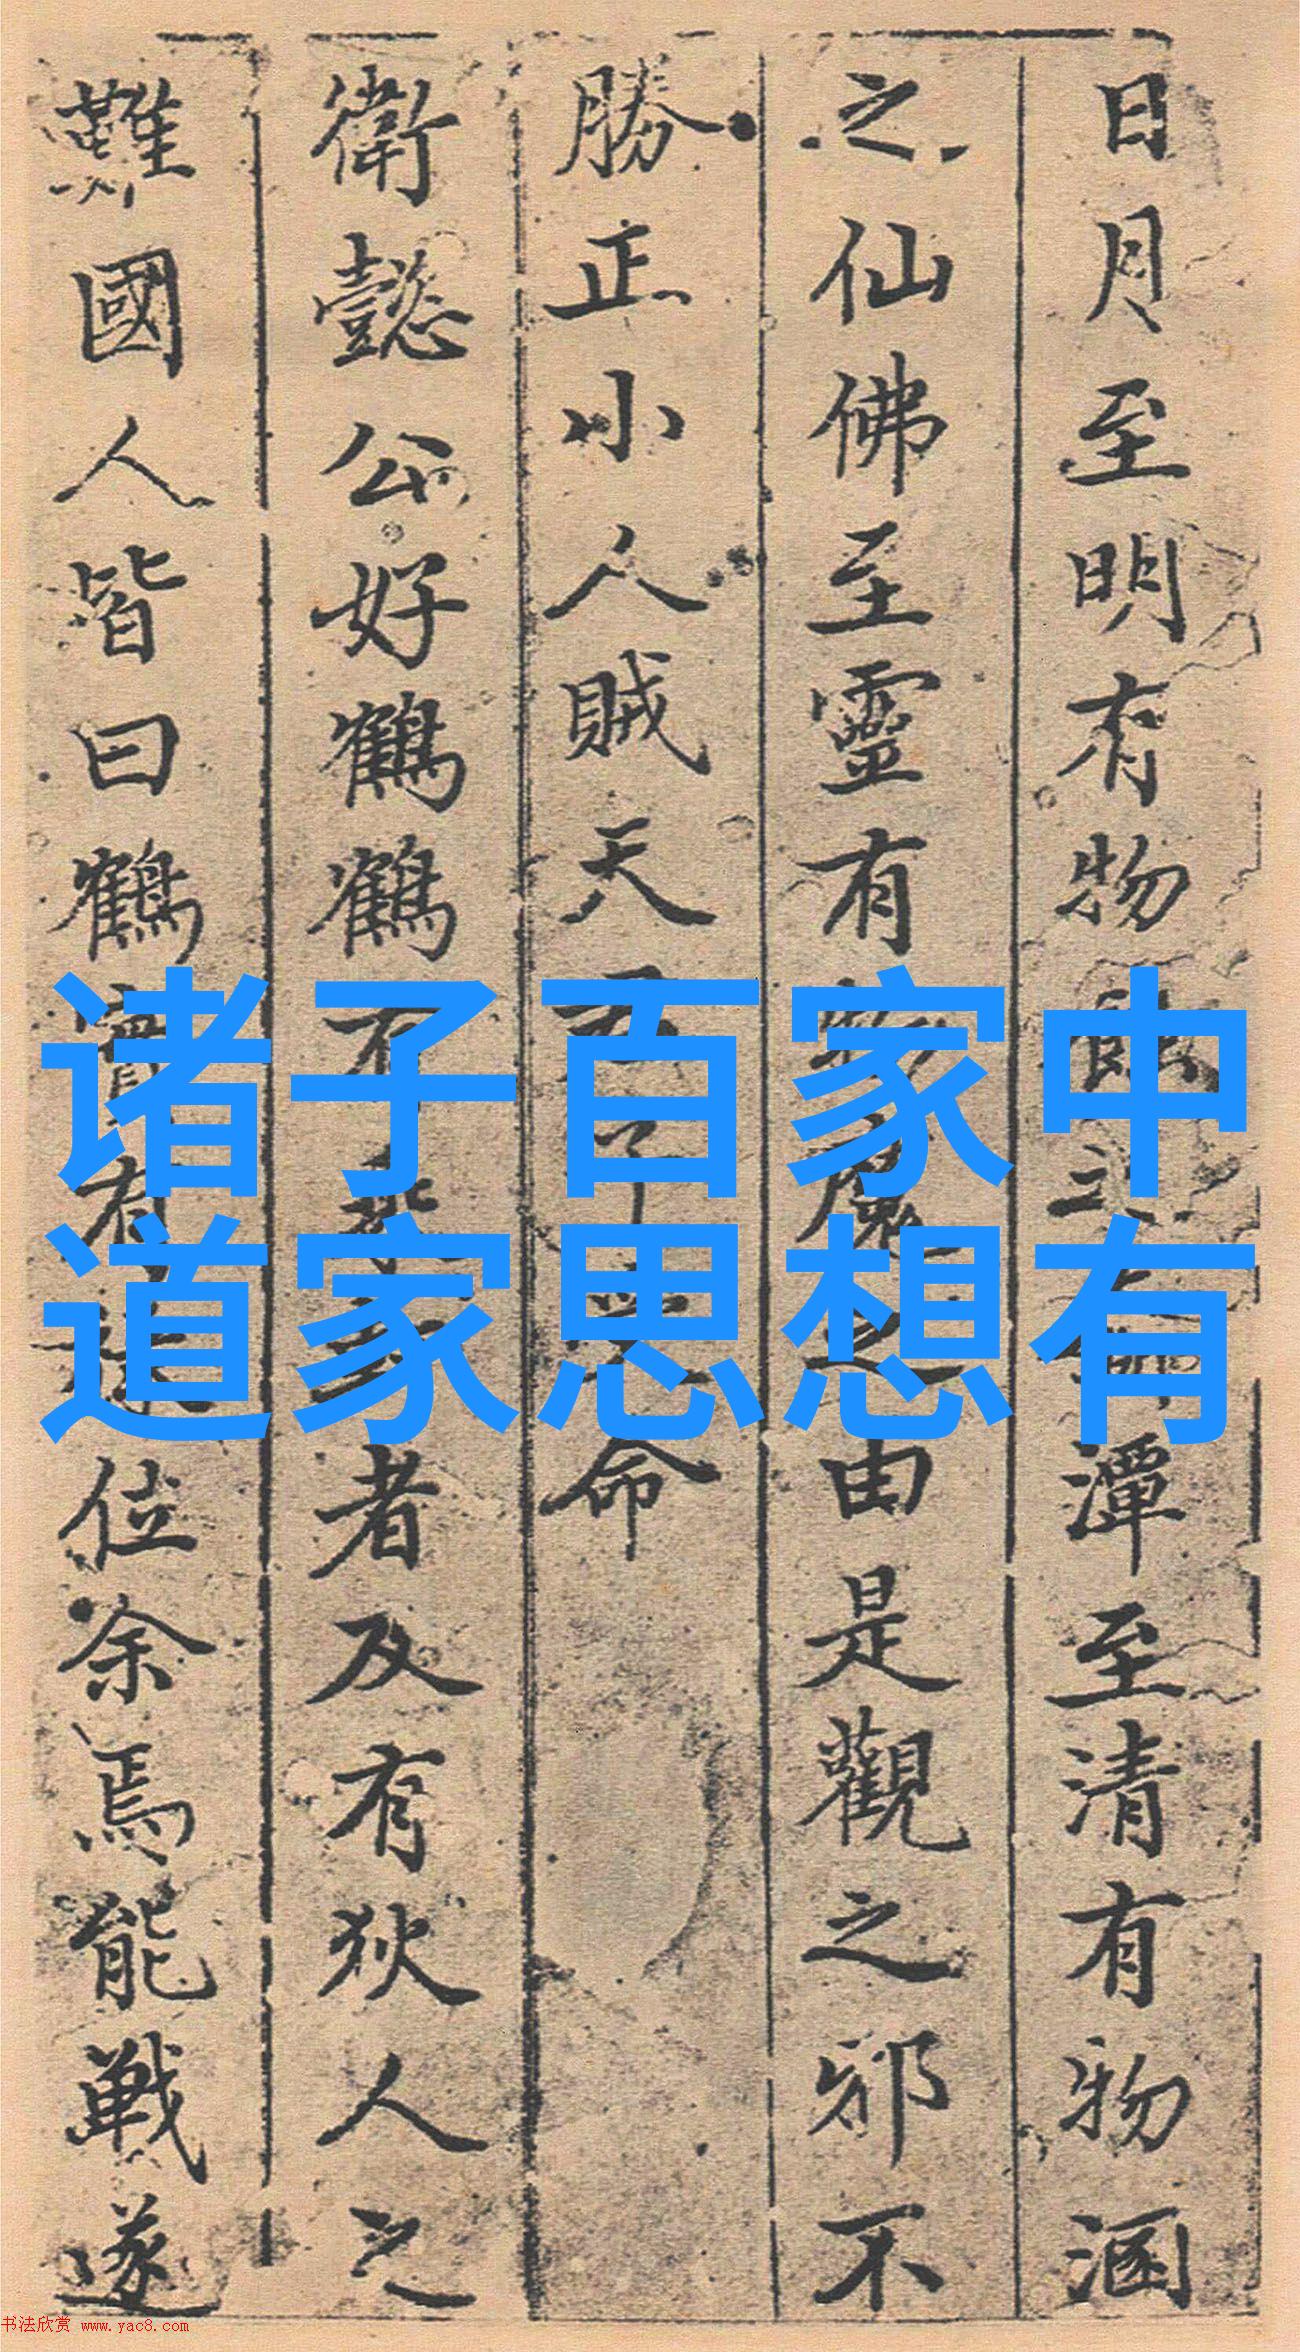 日月至明有物蝕之潭至清有物涵
之仙佛至靈有物魔之由是觀之邪不
勝正小人賊天命
衛懿公好鶴鶴有乘軒者及有狄人之
難國人皆曰鶴實有祿位余焉能戰遂
诸子百家中
道家思想有
书法欣赏 www.yac8.com